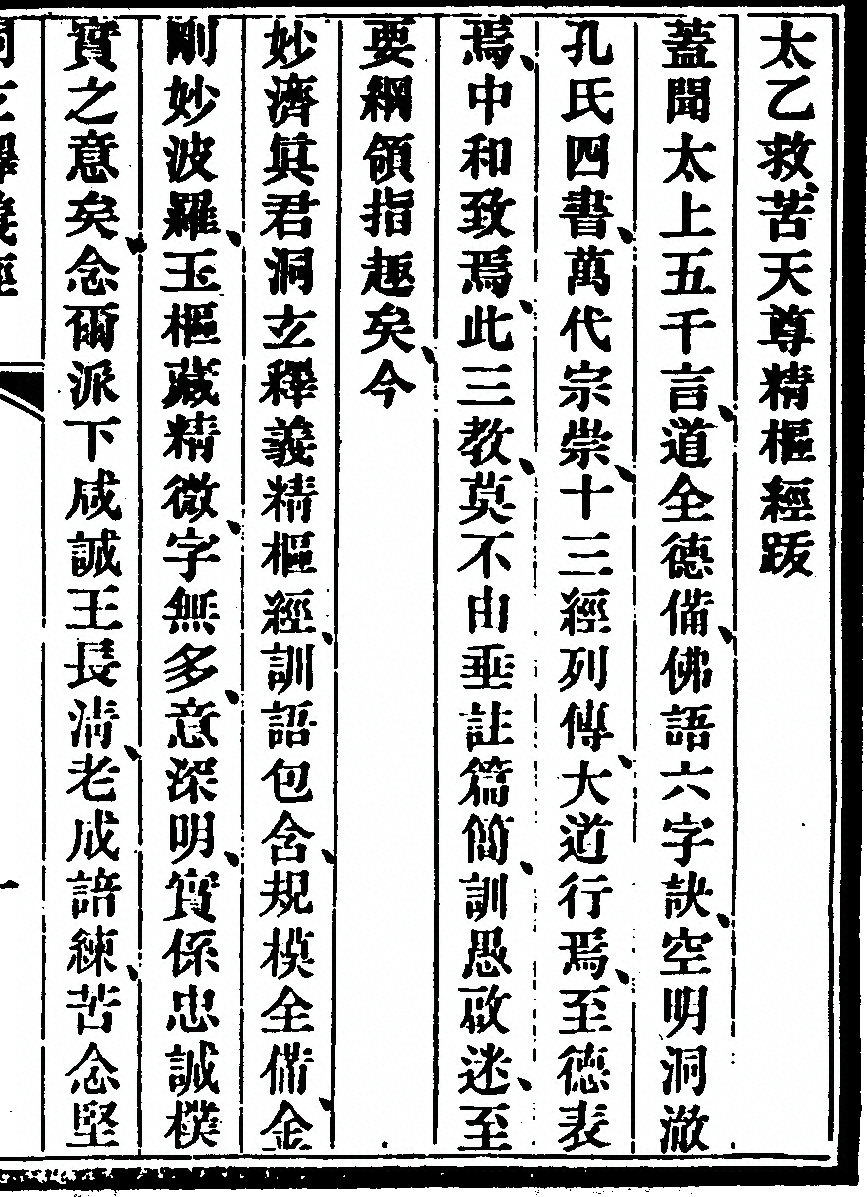 太乙救苦天尊精樞經跋
蓋聞太上五千言、道全德備、佛語六字訣、空明洞澈
孔氏四書、萬代宗崇、十三經列傳、大道行焉、至德表
焉、中和致焉、此三教、莫不由垂註篇簡、訓愚啟迷、至
要綱領指趣矣、今
妙濟真君洞玄釋義精樞經、訓語包含、規模全備、金
剛妙波羅、玉樞藏精微、字無多、意深明、實係忠誠樸
實之意矣、念爾派下成誠王長清、老成諳練、苦念堅
洞玄釋義經 一